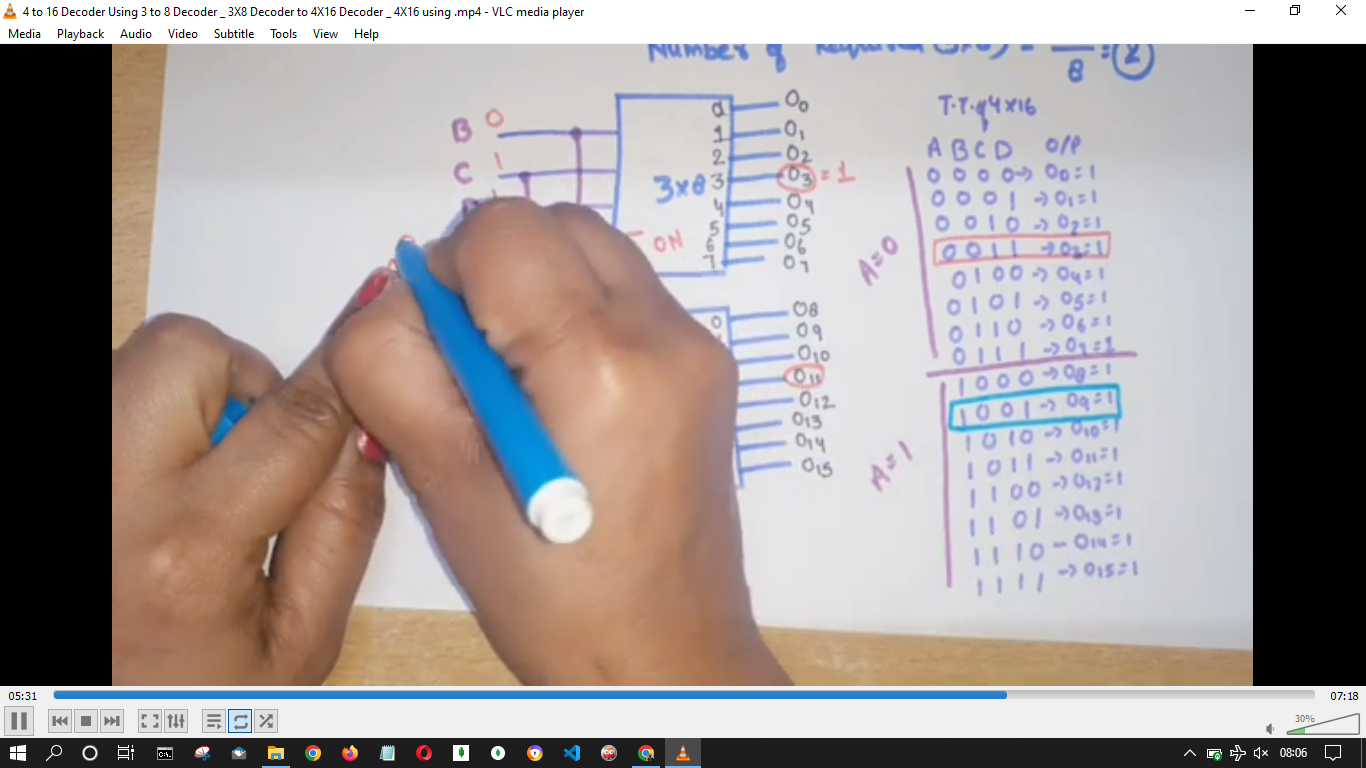 4 to 16 Decoder Using 3 to 8 Decoder _ 3X8 Decoder to 4X16 Decoder _ 4X16 using .mp4 - VLC media player
Media Playback Audio Video Subtitle Tools View Help
Number of Required (3x8) =
8 = 2
B 0
C 1
3x8
ON
0 O0
1 O1
2 O2
3 O3 = 1
4 O4
5 O5
6 O6
7 O7
0 O8
O9
O10
O11
O12
O13
O14
O15
T.T. of 4x16
A B C D O/P
0 0 0 0 -> O0=1
0 0 0 1 -> O1=1
0 0 1 0 -> O2=1
0 0 1 1 -> O3=1
0 1 0 0 -> O4=1
0 1 0 1 -> O5=1
0 1 1 0 -> O6=1
0 1 1 1 -> O7=1
A=0
1 0 0 0 -> O8=1
1 0 0 1 -> O9=1
1 0 1 0 -> O10=1
1 0 1 1 -> O11=1
1 1 0 0 -> O12=1
1 1 0 1 -> O13=1
1 1 1 0 - O14=1
1 1 1 1 -> O15=1
A=1
05:31 07:18
30%
08:06